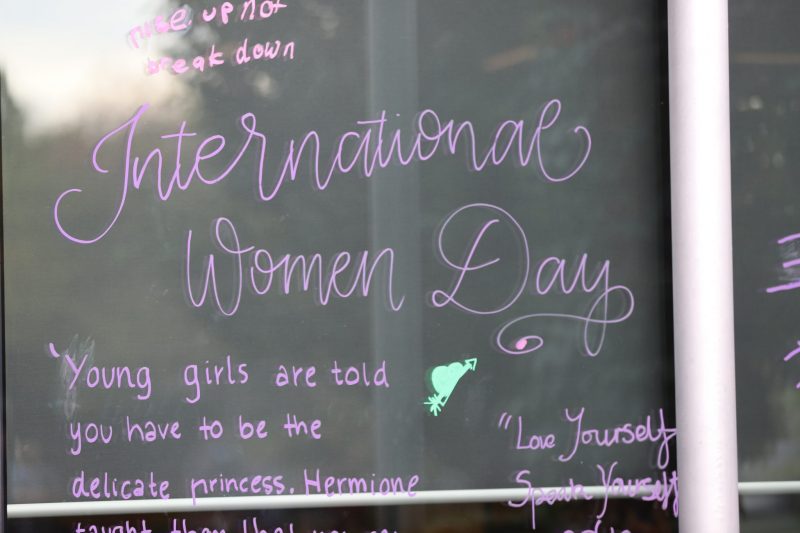 rise up not
break down
International
Women Day
'Young girls are told
you have to be the
delicate princess. Hermione
taught them that you can
"Love Yourself
Speak Yourself